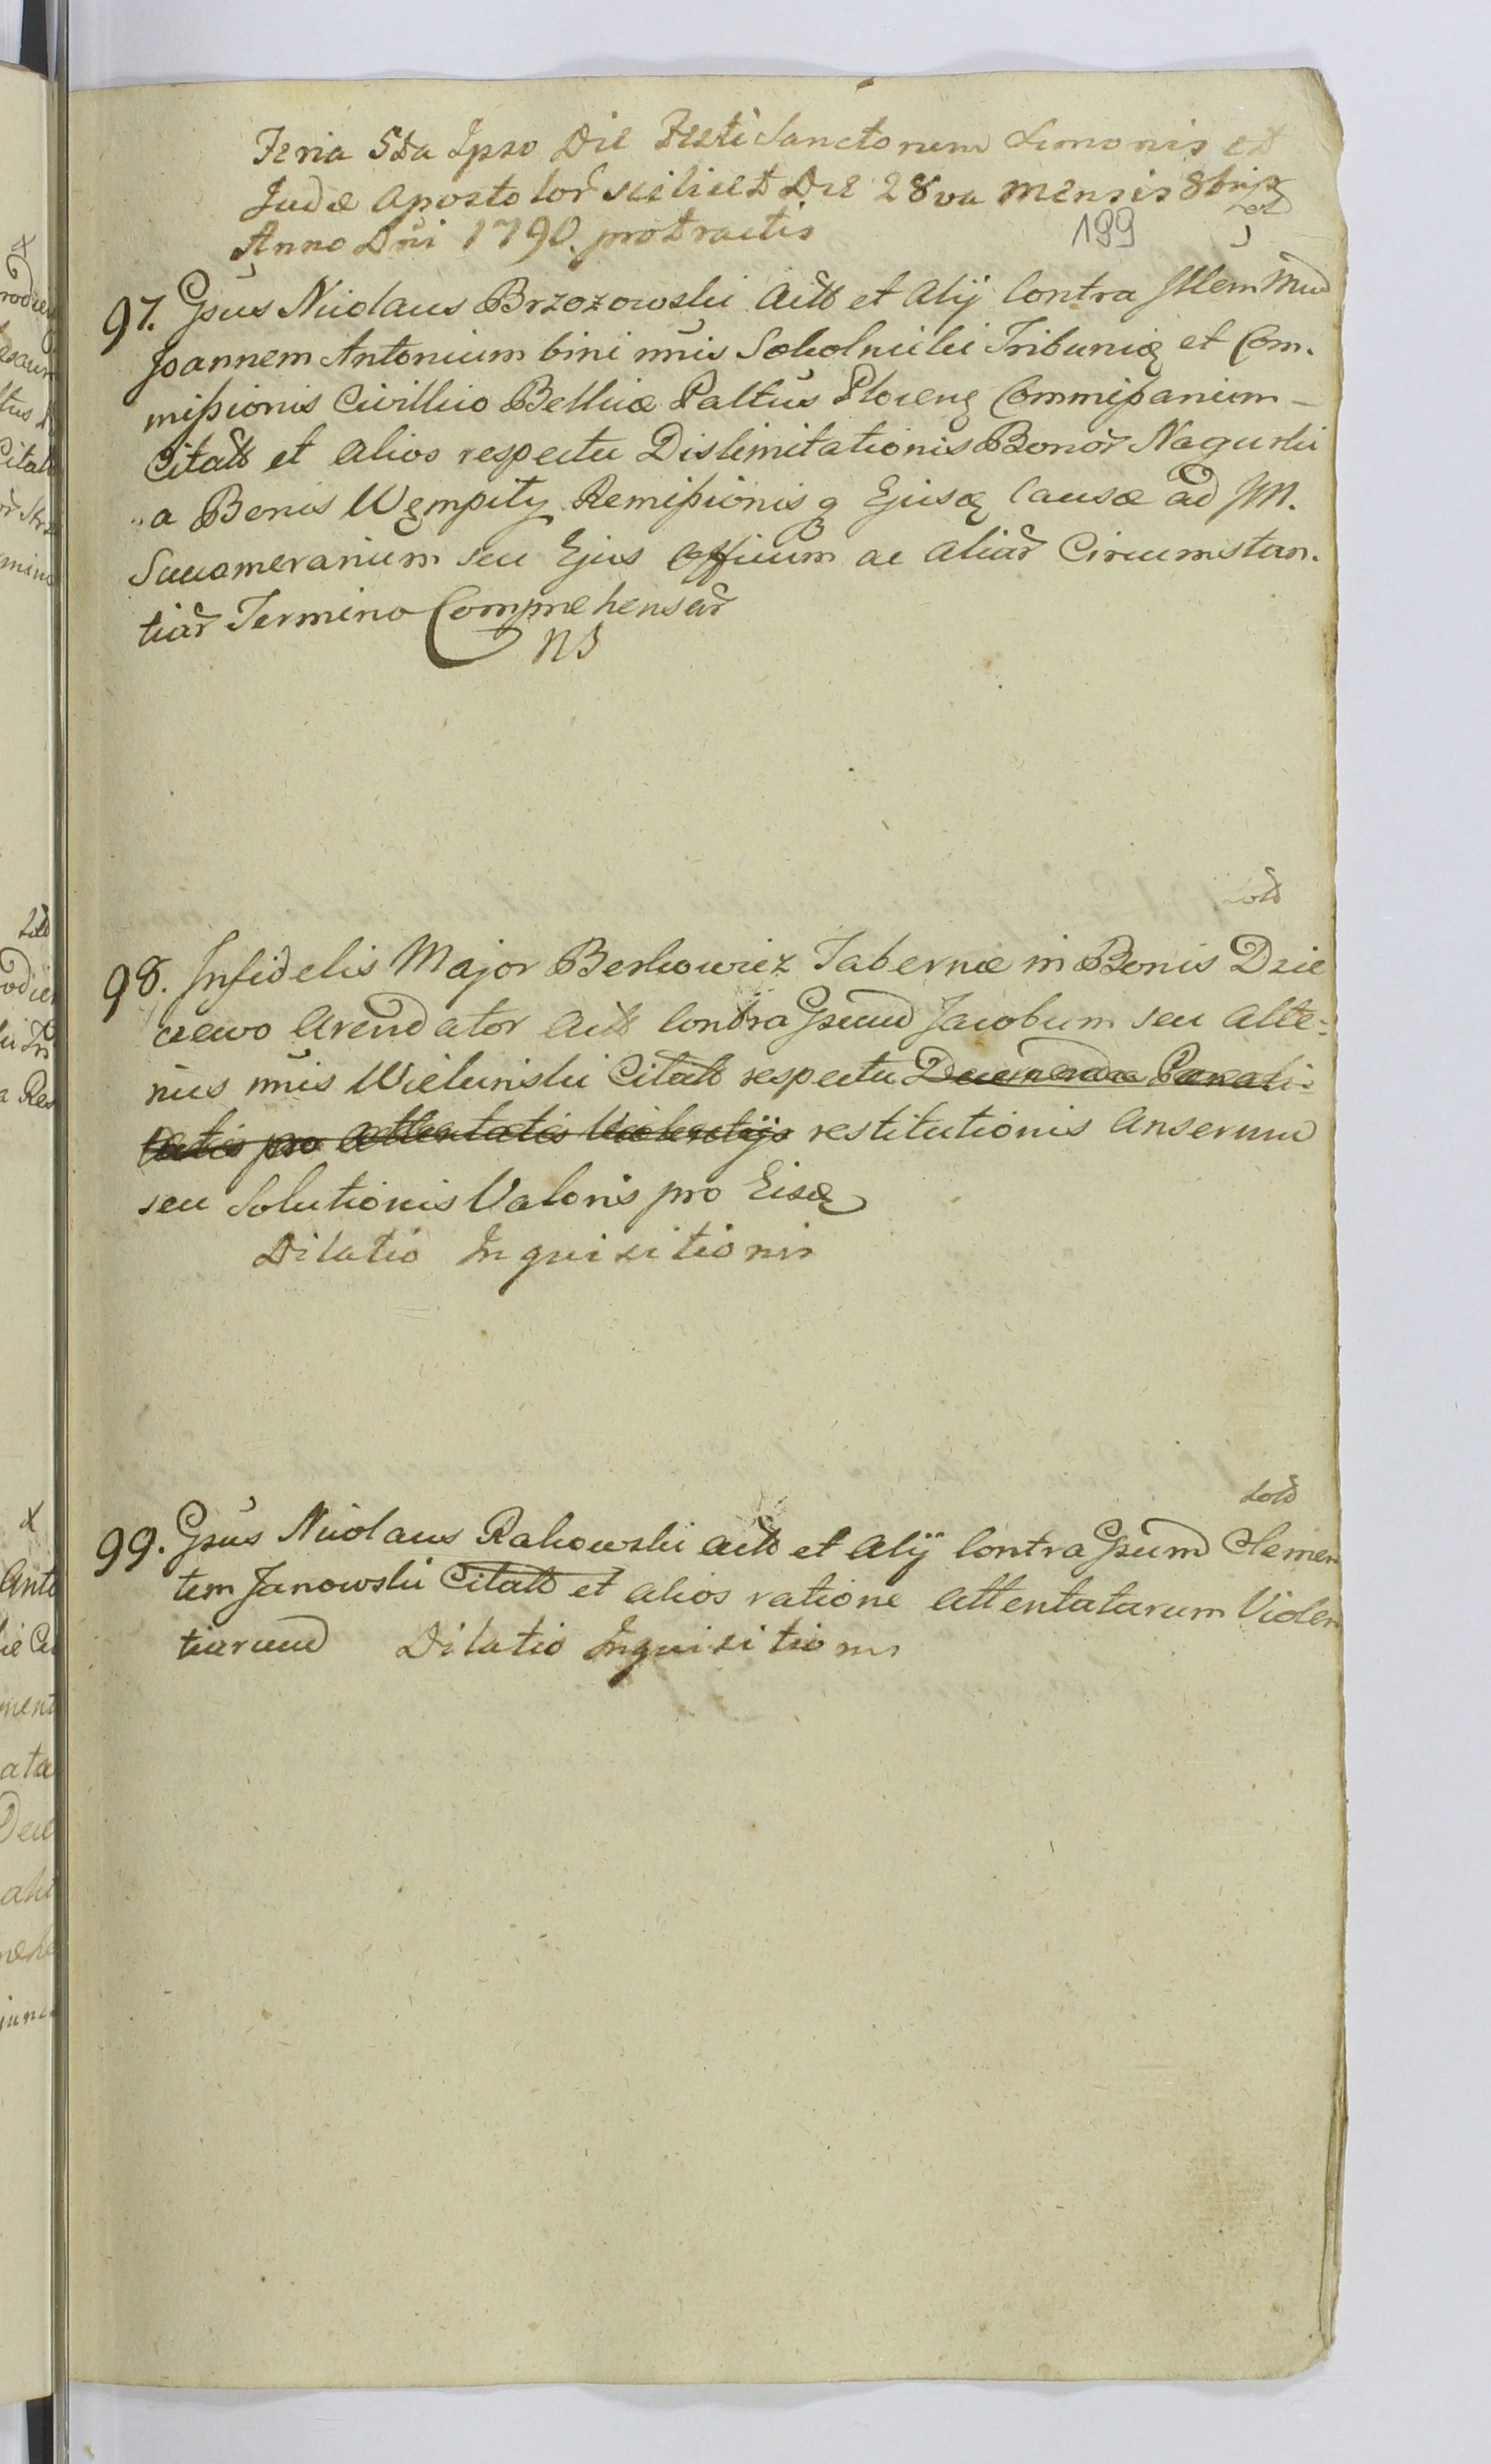 Feria 5ta Ipso Die Festi Sanctorum Simonis et
Judæ Apostolor̃ scilicet Die 28va Mensis 8bris
Anno Dñi 1790. protractis
199
97. Gsus Nicolaus Brzozowski Actt et Alij Contra Illem Mnd
Joannem Antonium bini nñis Sokolnicki Tribunię et Com.
mißionis Civillico Bellicæ Paltus Plocenę Commißarium –
Citatt et alios respectu Dislimitationis Bonor̃ Nagurki
"a Bonis Wępity Remißionis q Ejusq Causæ ad JM.
Succamerarium seu Ejus Officium ac aliar̃ Circumstan.
tiar̃ Termino Comprehensar̃
NS
solt
98. Infidelis Major Berkowicz Tabernæ in Bonis Dzie
czewo Arendator Actt Contra Gsum Jacobum seu alte=
rius nñis Wielunski Citatt respectu Decernendæ Pœnali=
tatis pro attentatis Violentijs restitutionis Anserum
seu Solutionis Valoris pro Eisq
Dilatio Inquisitionis
solt
99. Gsus Nicolaus Rakowski actt et Alij Contra Gsum Clemen
tem Janowski Citatt et alios ratione attentatarum Violen
tiarum Dilatio Inquisitionis